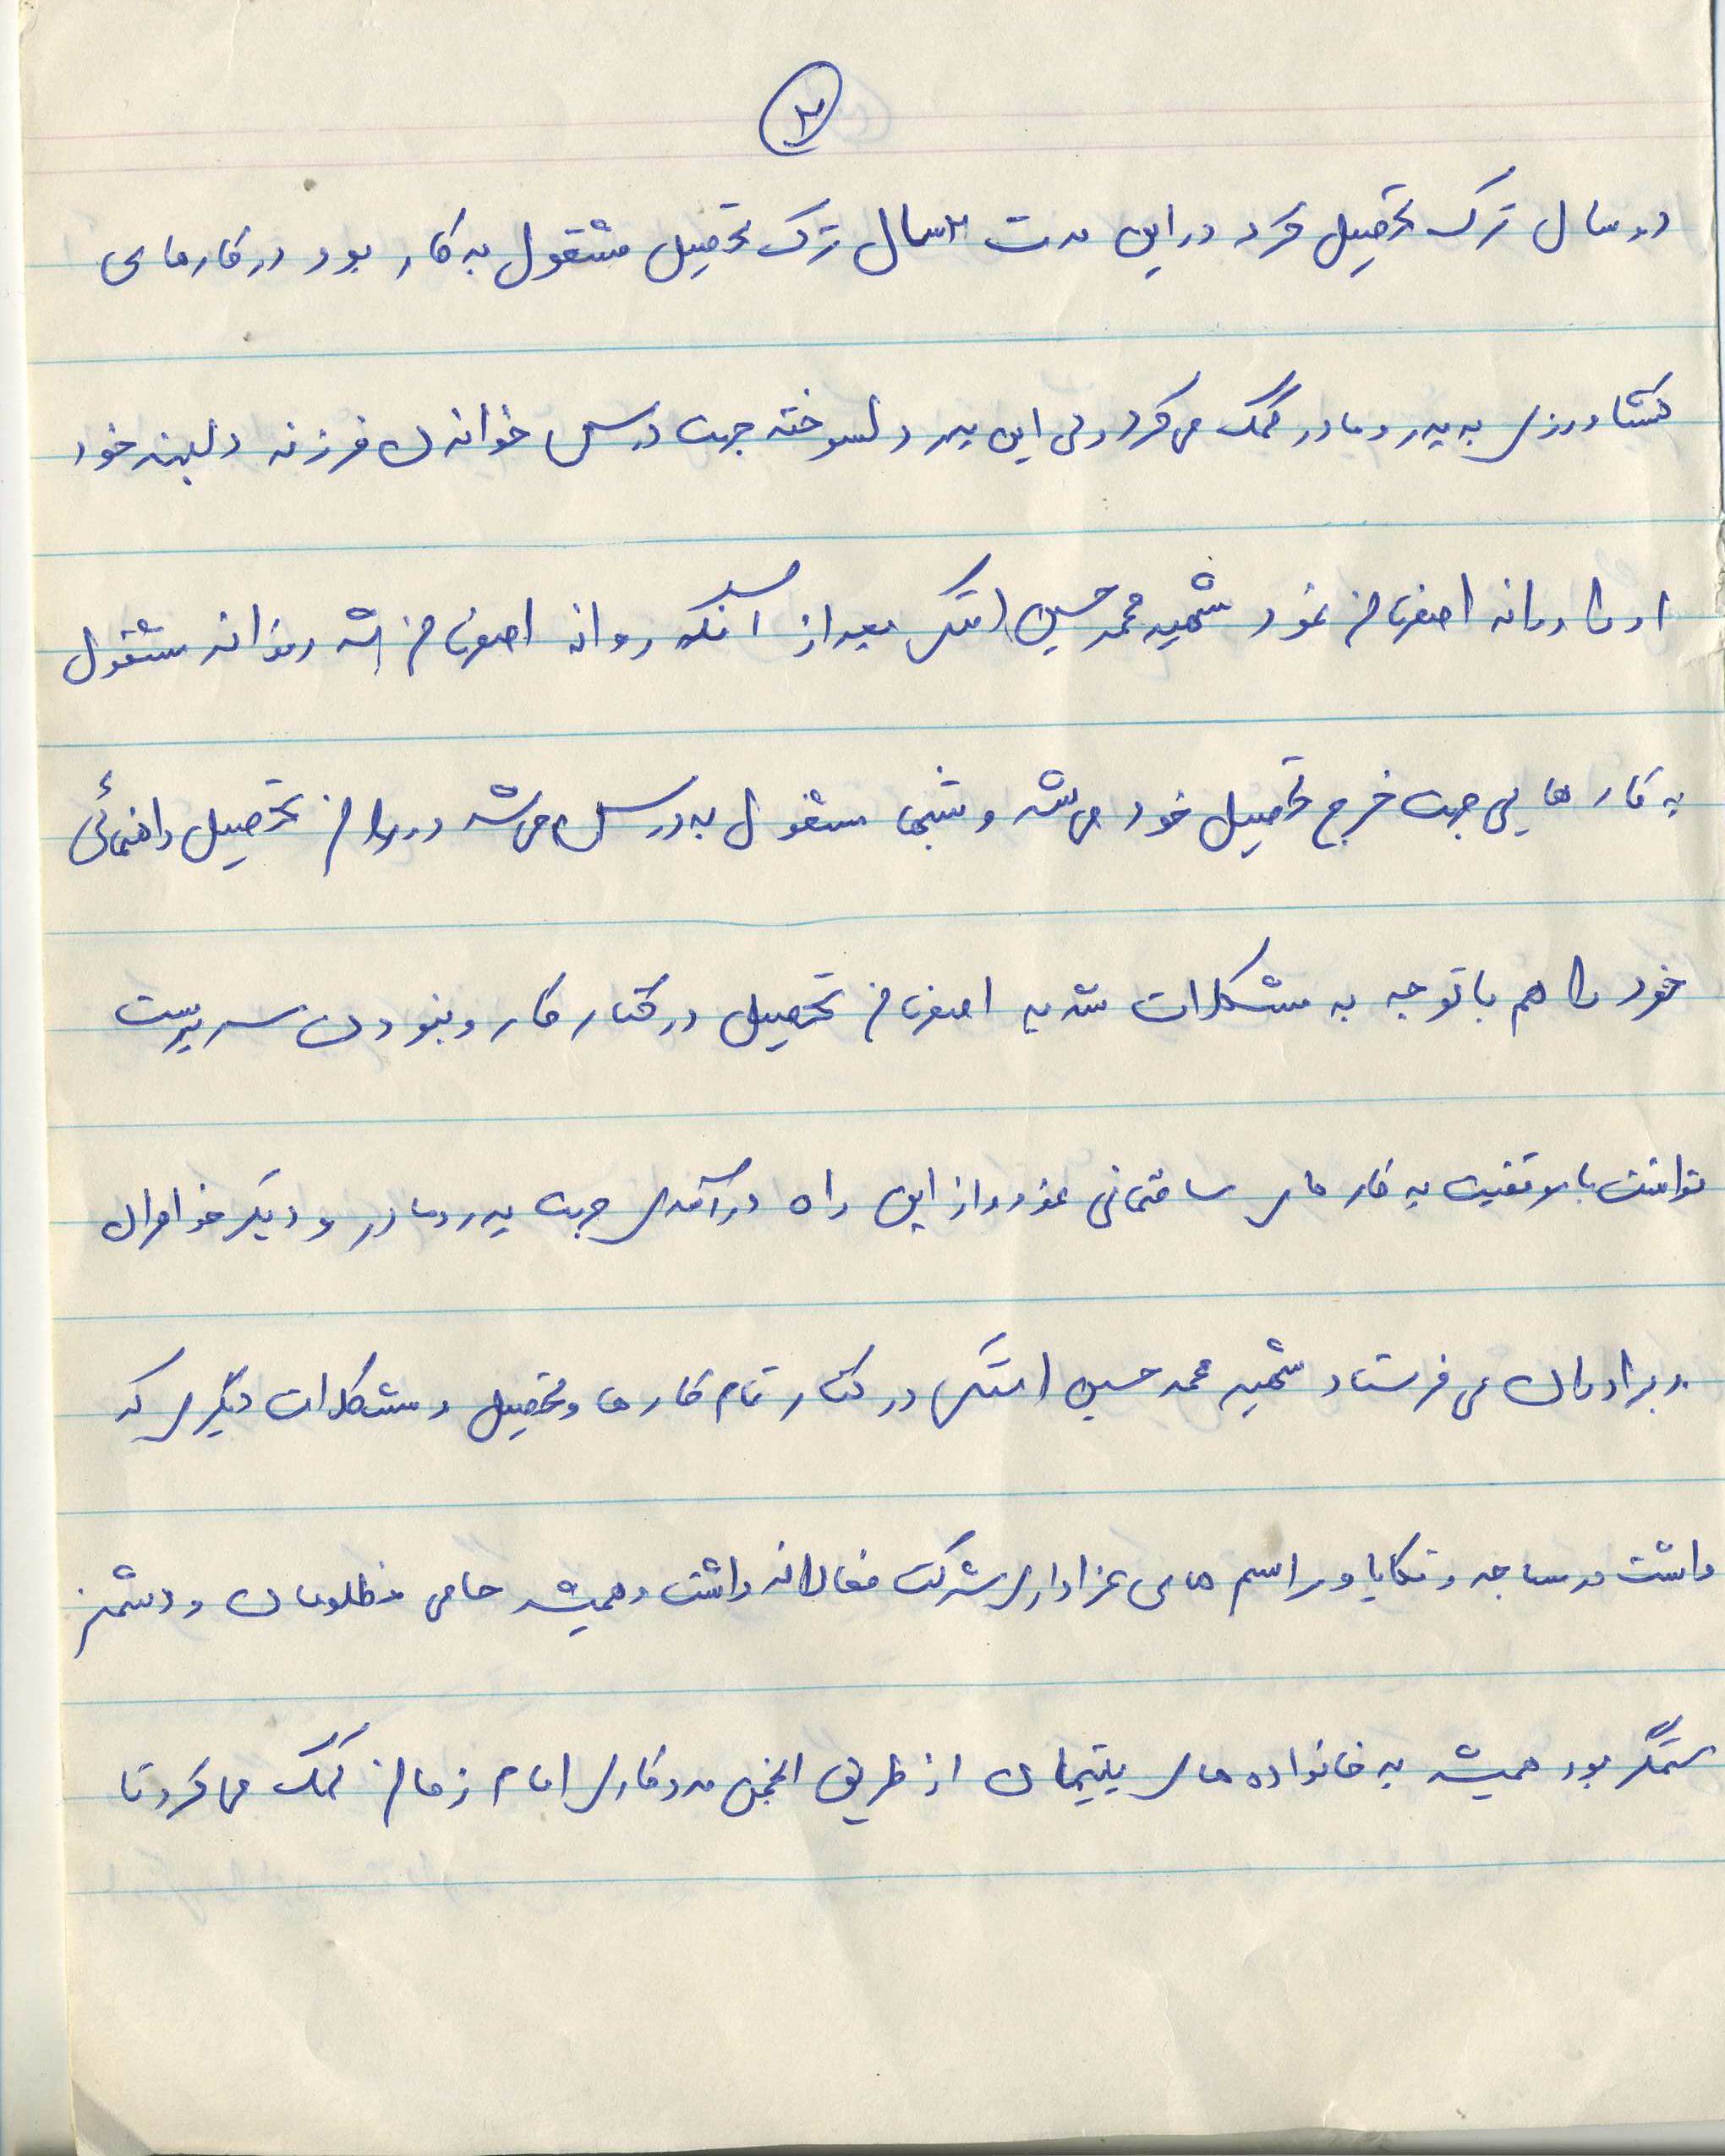 ۲
دو سال ترک تحصیل کرد در این مدت ۲سال ترک تحصیل مشغول به کار بود در کارهای
کشاورزی به پدر و مادر کمک می کرد ولی این پدر دلسوخته جهت درس خواندن فرزند دلبند خود
او را روانه اصفهان نمود شهید محمد حسین بعد از آنکه روانه اصفهان شد روزانه مشغول
به کار هایی جهت خرج تحصیل خود می شد و شبها مشغول به درس می شد دوران تحصیل راهنمائی
خود را هم با توجه به مشکلات شدید اصفهان تحصیل در کنار کار و نبودن سرپرست
توانست با موفقیت به کار های ساختمانی نمود و از این راه درآمدی جهت پدر و مادر و دیگر خواهران
و برادران می فرستاد شهید محمد حسین در کنار تمام کار ها و تحصیل و مشکلات دیگری که
داشت در مساجد و تکایا و مراسم های عزاداری شرکت فعالانه داشت و همیشه حامی مظلومان و دشمن
ستمگر بود همیشه به خانواده های یتیمان از طریق انجمن مددکاری امام زمان کمک می کرد تا